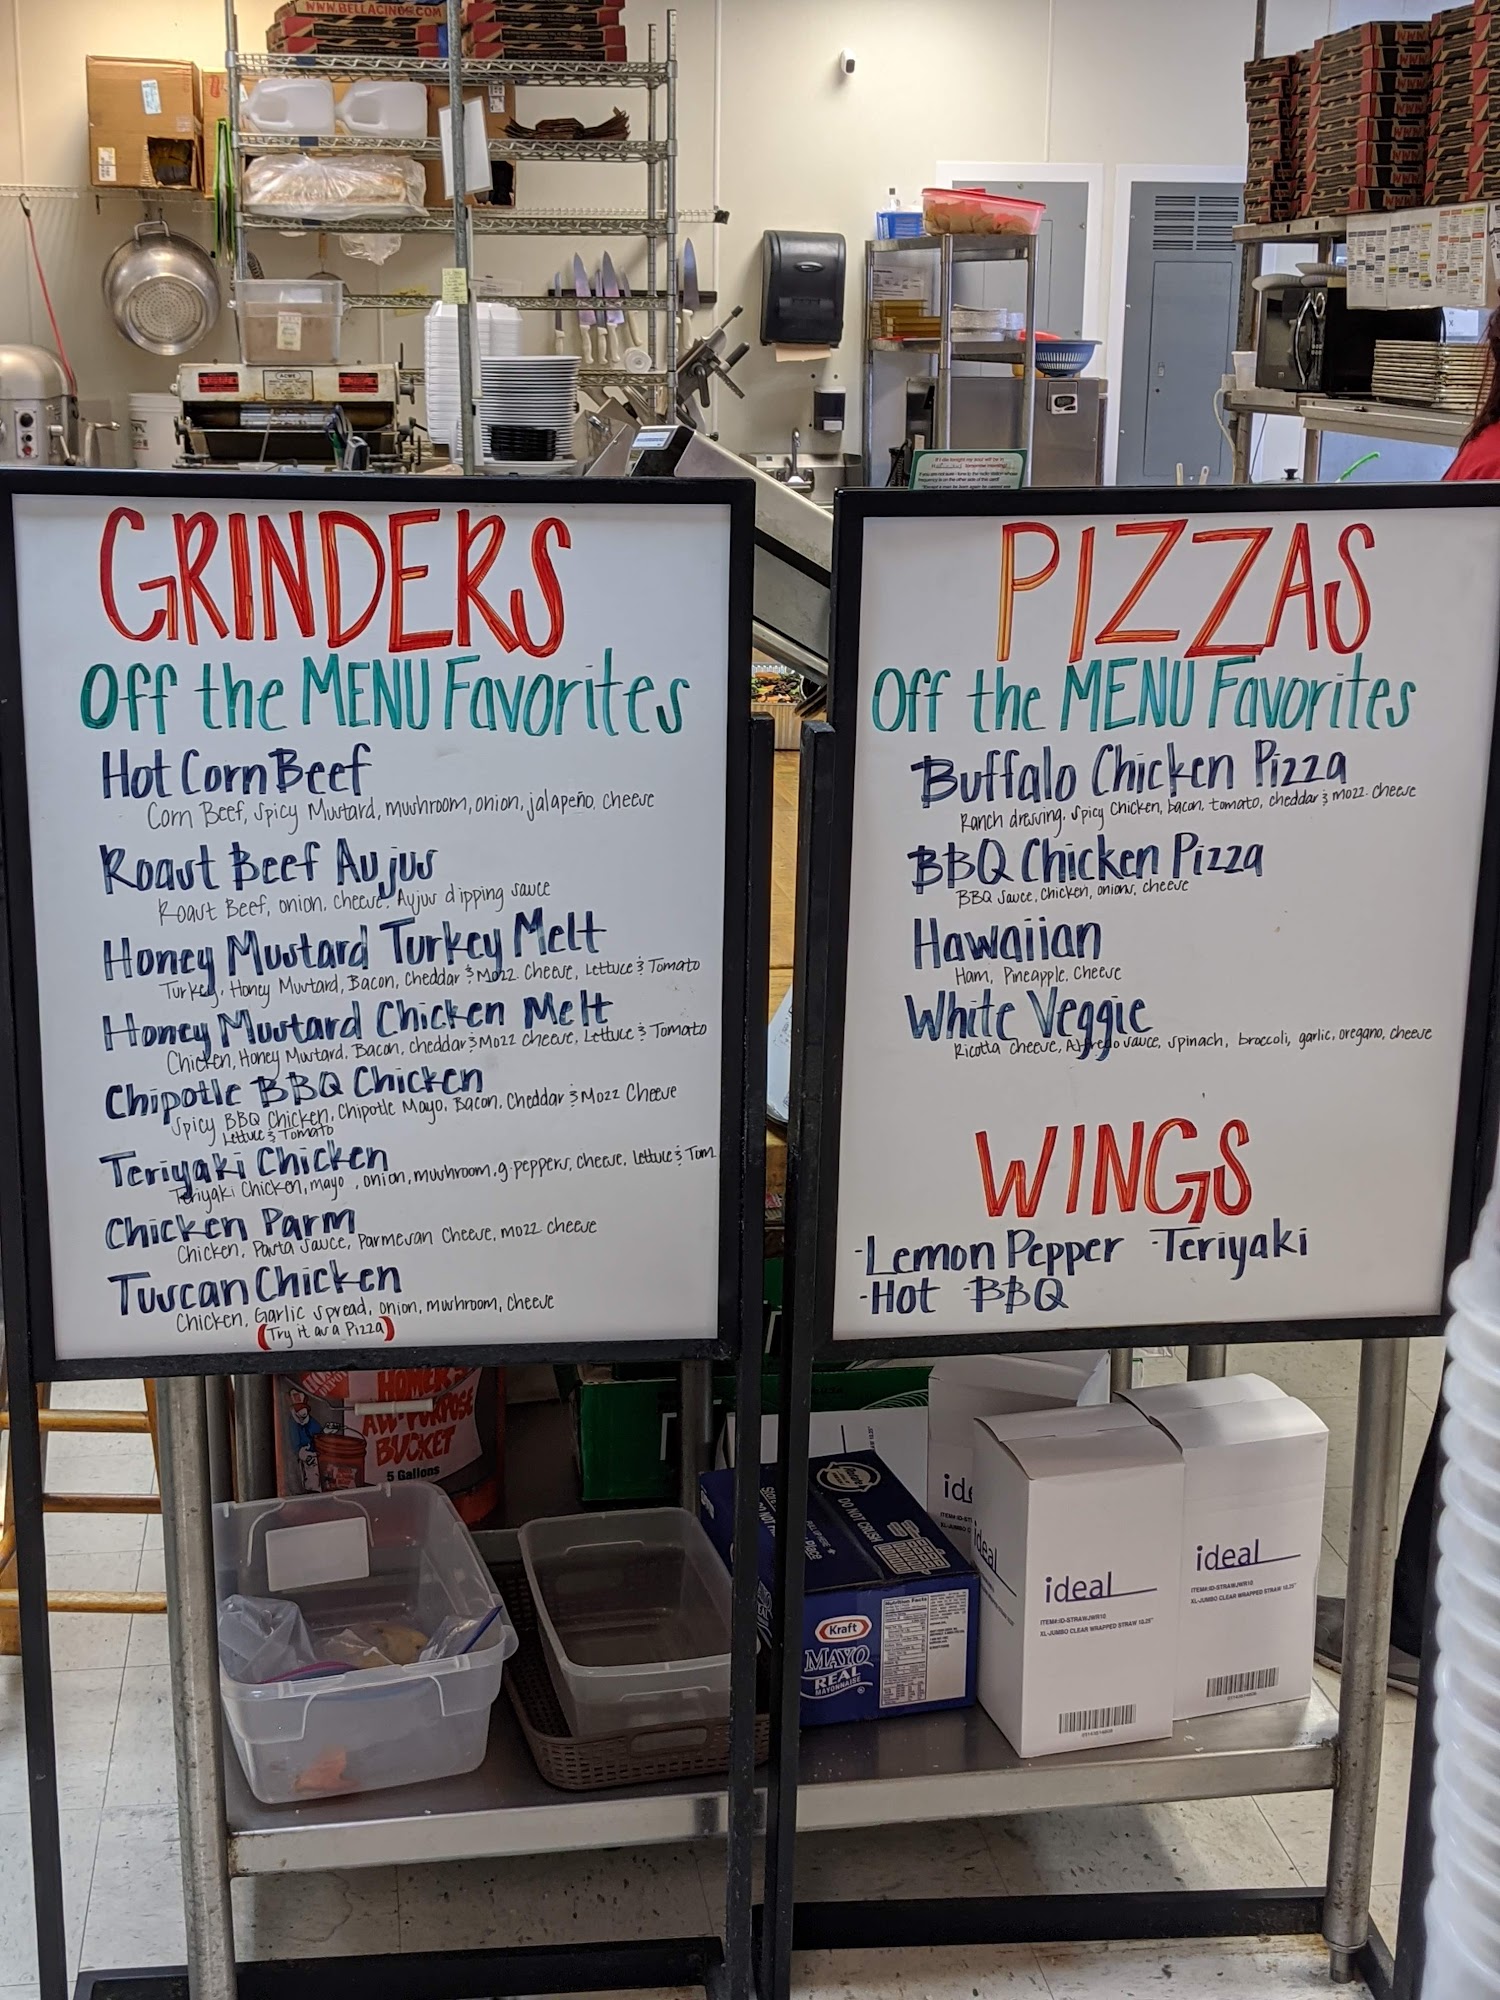 WWW.BELLACINOS.COM
ACME
GRINDERS
Off the MENU Favorites
Hot Corn Beef
Corn Beef, Spicy Mustard, mushroom, onion, jalapeño, cheese
Roast Beef Aujus
Roast Beef, onion, cheese, Aujus dipping sauce
Honey Mustard Turkey Melt
Turkey, Honey Mustard, Bacon, Cheddar & Mozz Cheese, Lettuce & Tomato
Honey Mustard Chicken Melt
Chicken, Honey Mustard, Bacon, cheddar & Mozz cheese, Lettuce & Tomato
Chipotle BBQ Chicken
Spicy BBQ Chicken, Chipotle Mayo, Bacon, Cheddar & Mozz Cheese
Lettuce & Tomato
Teriyaki Chicken
Teriyaki Chicken, mayo, onion, mushroom, g.peppers, cheese, Lettuce & Tom
Chicken Parm
Chicken, Pasta Sauce, Parmesan Cheese, mozz cheese
Tuscan Chicken
Chicken, Garlic spread, onion, mushroom, cheese
(Try it as a Pizza)
PIZZAS
Off the MENU Favorites
Buffalo Chicken Pizza
Ranch dressing, Spicy Chicken, bacon, tomato, cheddar & mozz cheese
BBQ Chicken Pizza
BBQ Sauce, Chicken, onions, cheese
Hawaiian
Ham, Pineapple, Cheese
White Veggie
Ricotta cheese, Alfredo sauce, spinach, broccoli, garlic, oregano, cheese
WINGS
-Lemon Pepper -Teriyaki
-Hot -BBQ
HOMER'S
ALL-PURPOSE
BUCKET
5 Gallons
DO NOT CRUSH
Kraft
MAYO
REAL
MAYONNAISE
Nutrition Facts
ideal
ITEM#:ID-STRAWJWR10
XL-JUMBO CLEAR WRAPPED STRAW 10.25"
ideal
ITEM#:ID-STRAWJWR10
XL-JUMBO CLEAR WRAPPED STRAW 10.25"